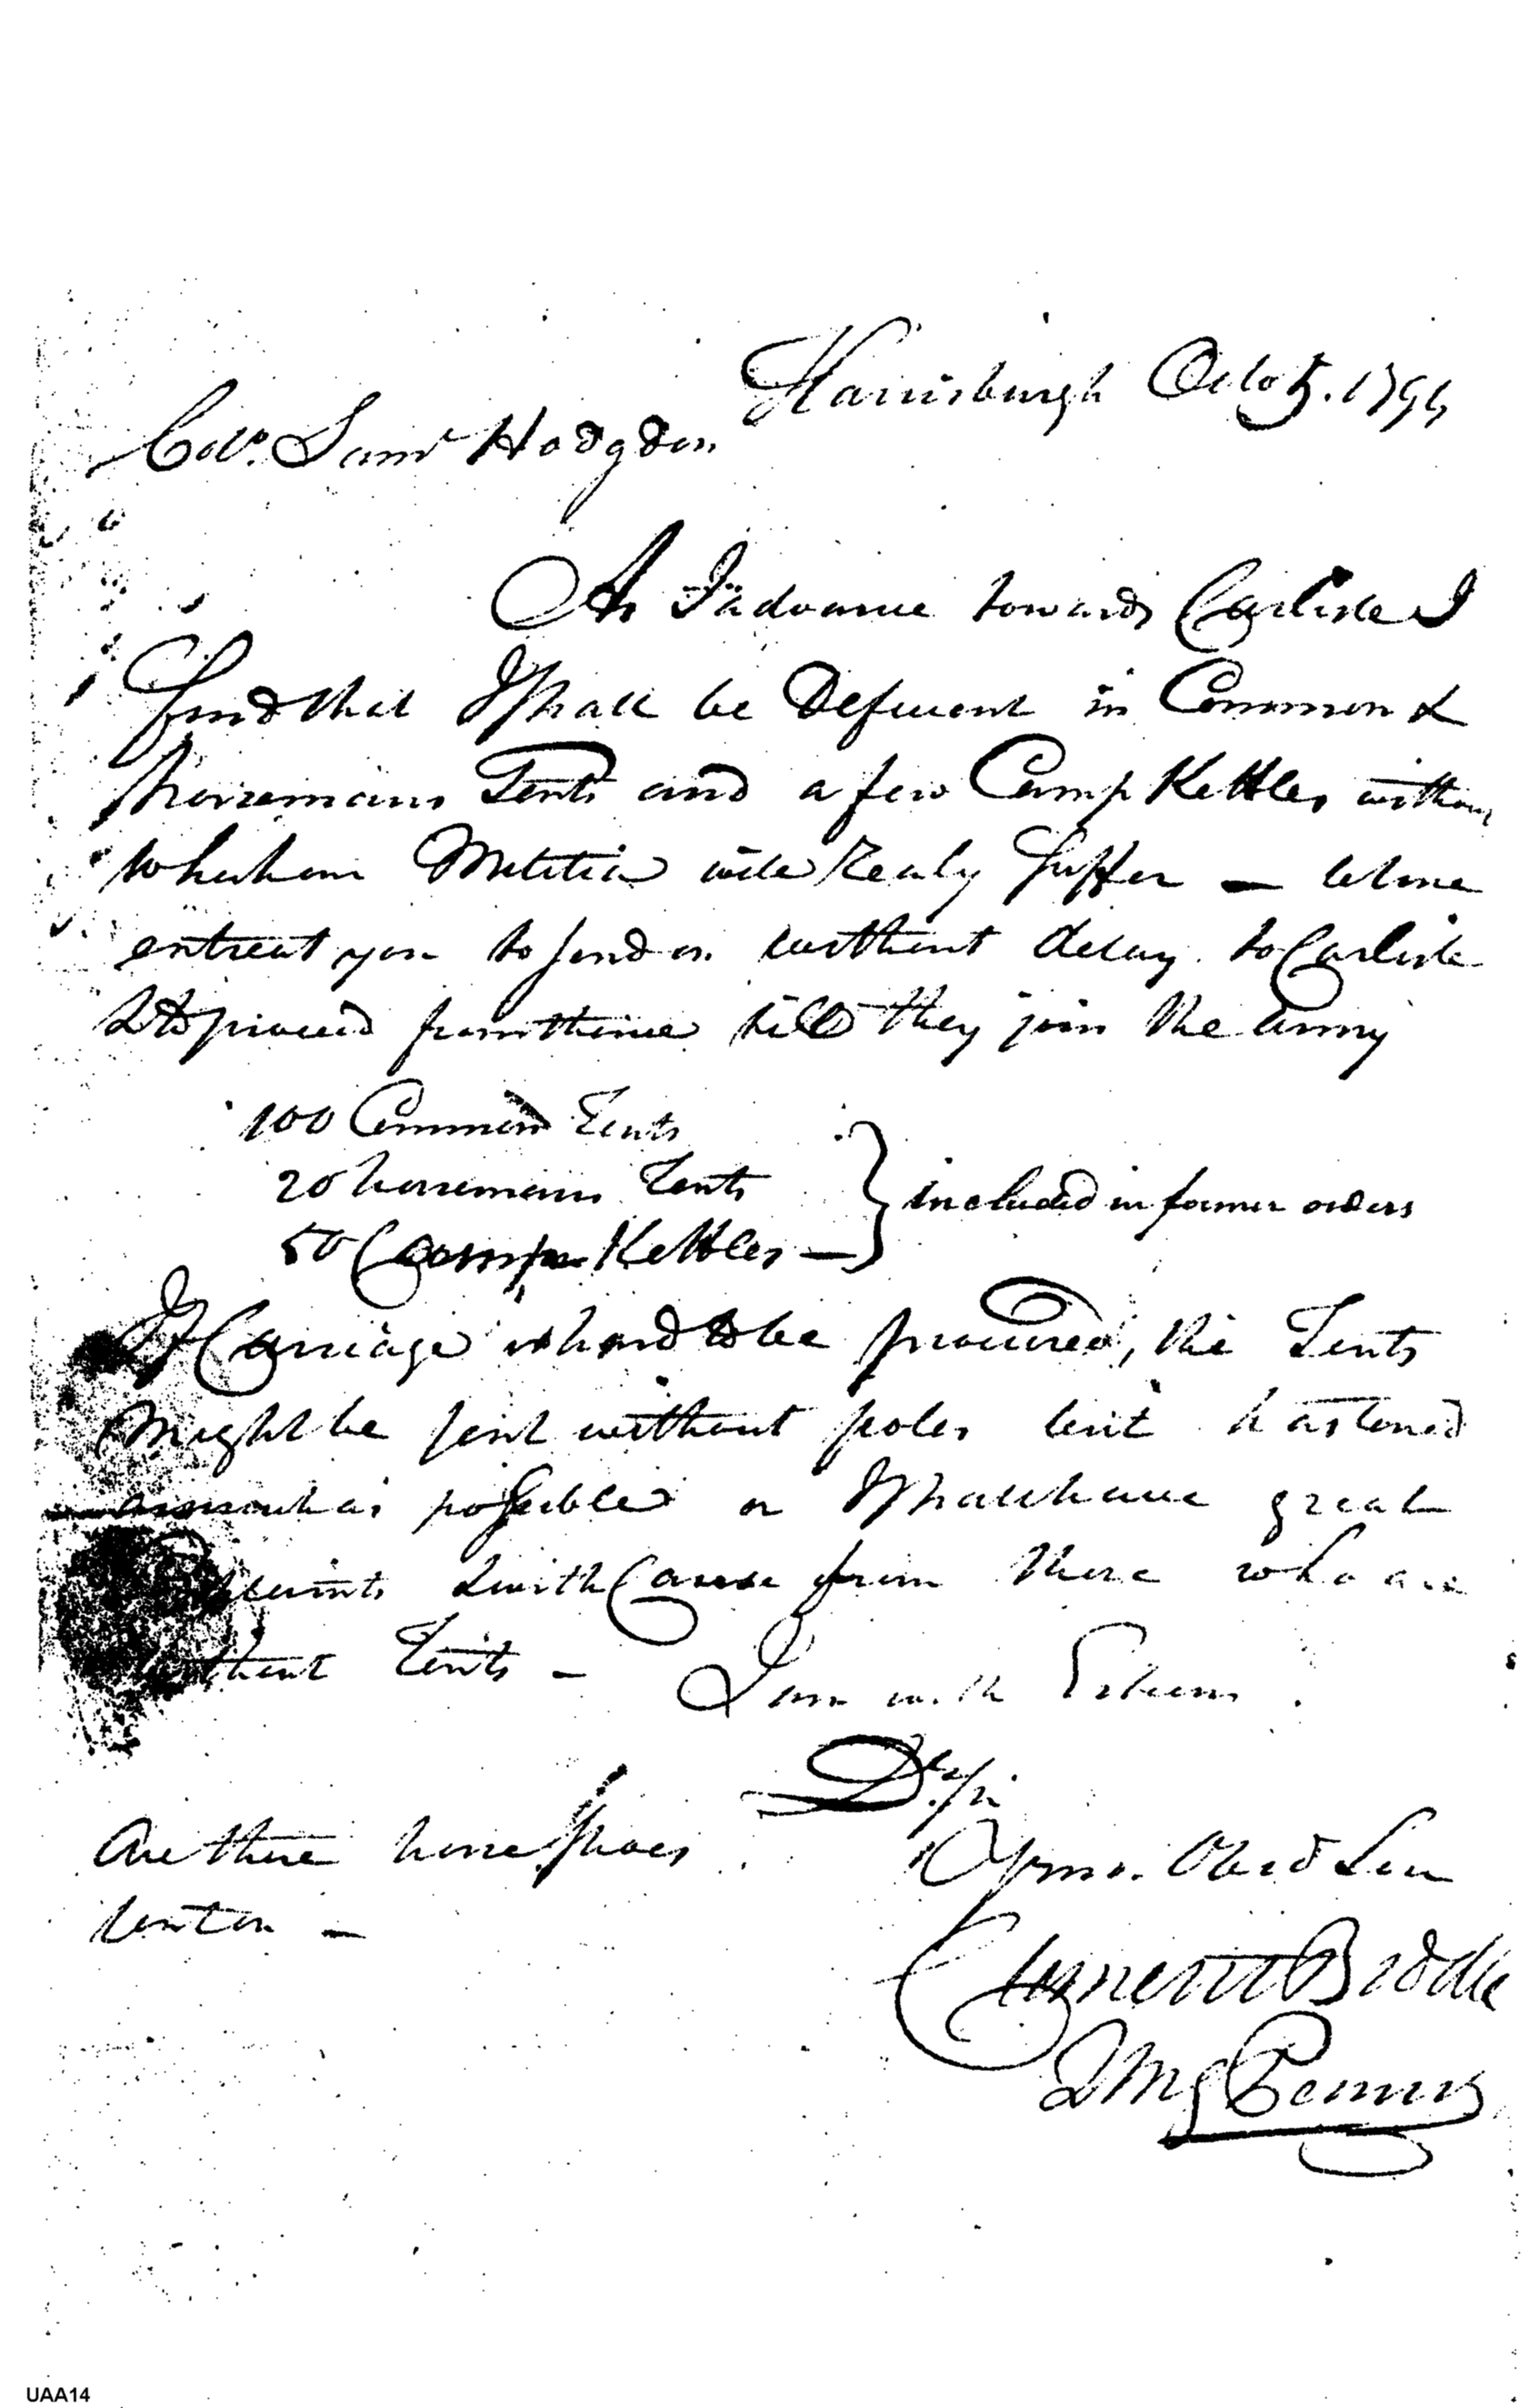 Harrisburgh Octo 5. 1794
Colo. Saml Hodgdon
As I advance towards Carlisle I
find that I shall be Deficient in Common &
horsemans Tents and a few Camp Kettles without
which our Militia will realy suffer — let me
entreat you to send on without delay to Carlisle
& to proceed from thence till they join the army
100 Common Tents
20 horsemans Tents
50 Camp Kettles — } included in former orders
If Carriage is hard to be procured, the Tents
might be sent without poles but hastened
as much as possible or I shall have great
& with Cause from those who are
without Tents — I am with Esteem
Dr Sir
Yr mo. Obed Serv
Clement Biddle
QMG Pennsa
Are there horse shoes
sent on —
UAA14